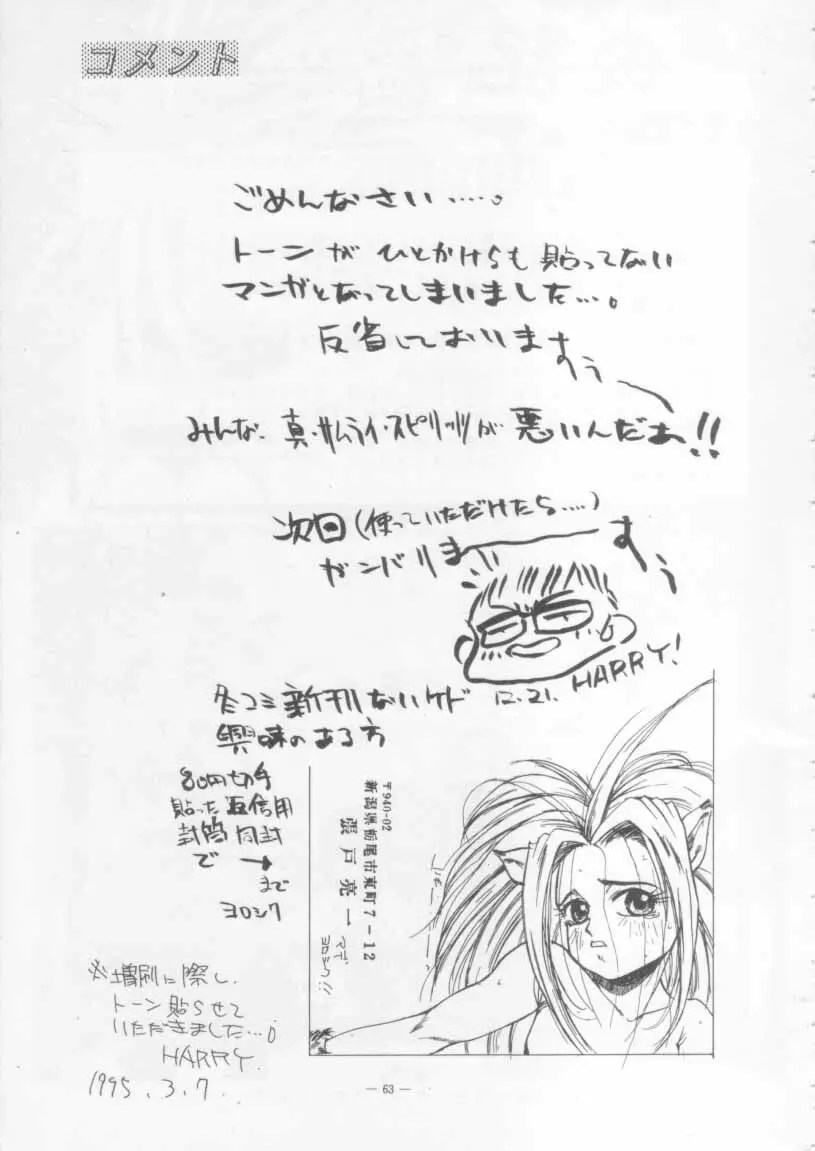 コメント
ごめんなさい……。
トーンがひとかけらも貼ってない
マンガとなってしまいました…。
反省しております
みんな、真・サムライ・スピリッツが悪いんだぁ!!
次回(使っていただけたら……)
ガンバリます
HARRY!
12.21.
冬コミ新刊ないケド
興味のある方
80円切手
貼った返信用
封筒同封
で→
まで
ヨロシク
〒940-02
新潟県栃尾市東町7-12
張戸亮一
マデ
ヨロシク!!
※増刷に際し、
トーン貼らせて
いただきました…。
HARRY.
1995.3.7.
— 63 —